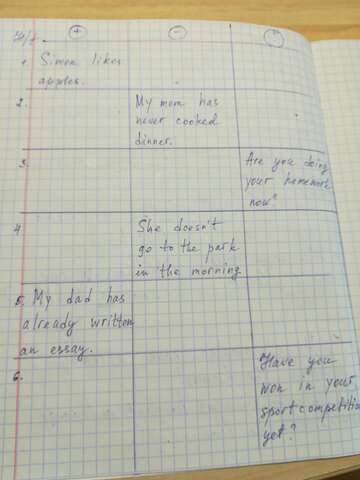 + - ?
1. Simon likes
apples.
2. My mom has
never cooked
dinner.
3. Are you doing
your homework
now?
4 She doesn't
go to the park
in the morning.
5. My dad has
already written
an essay.
6. Have you
won in your
sport competition
yet?